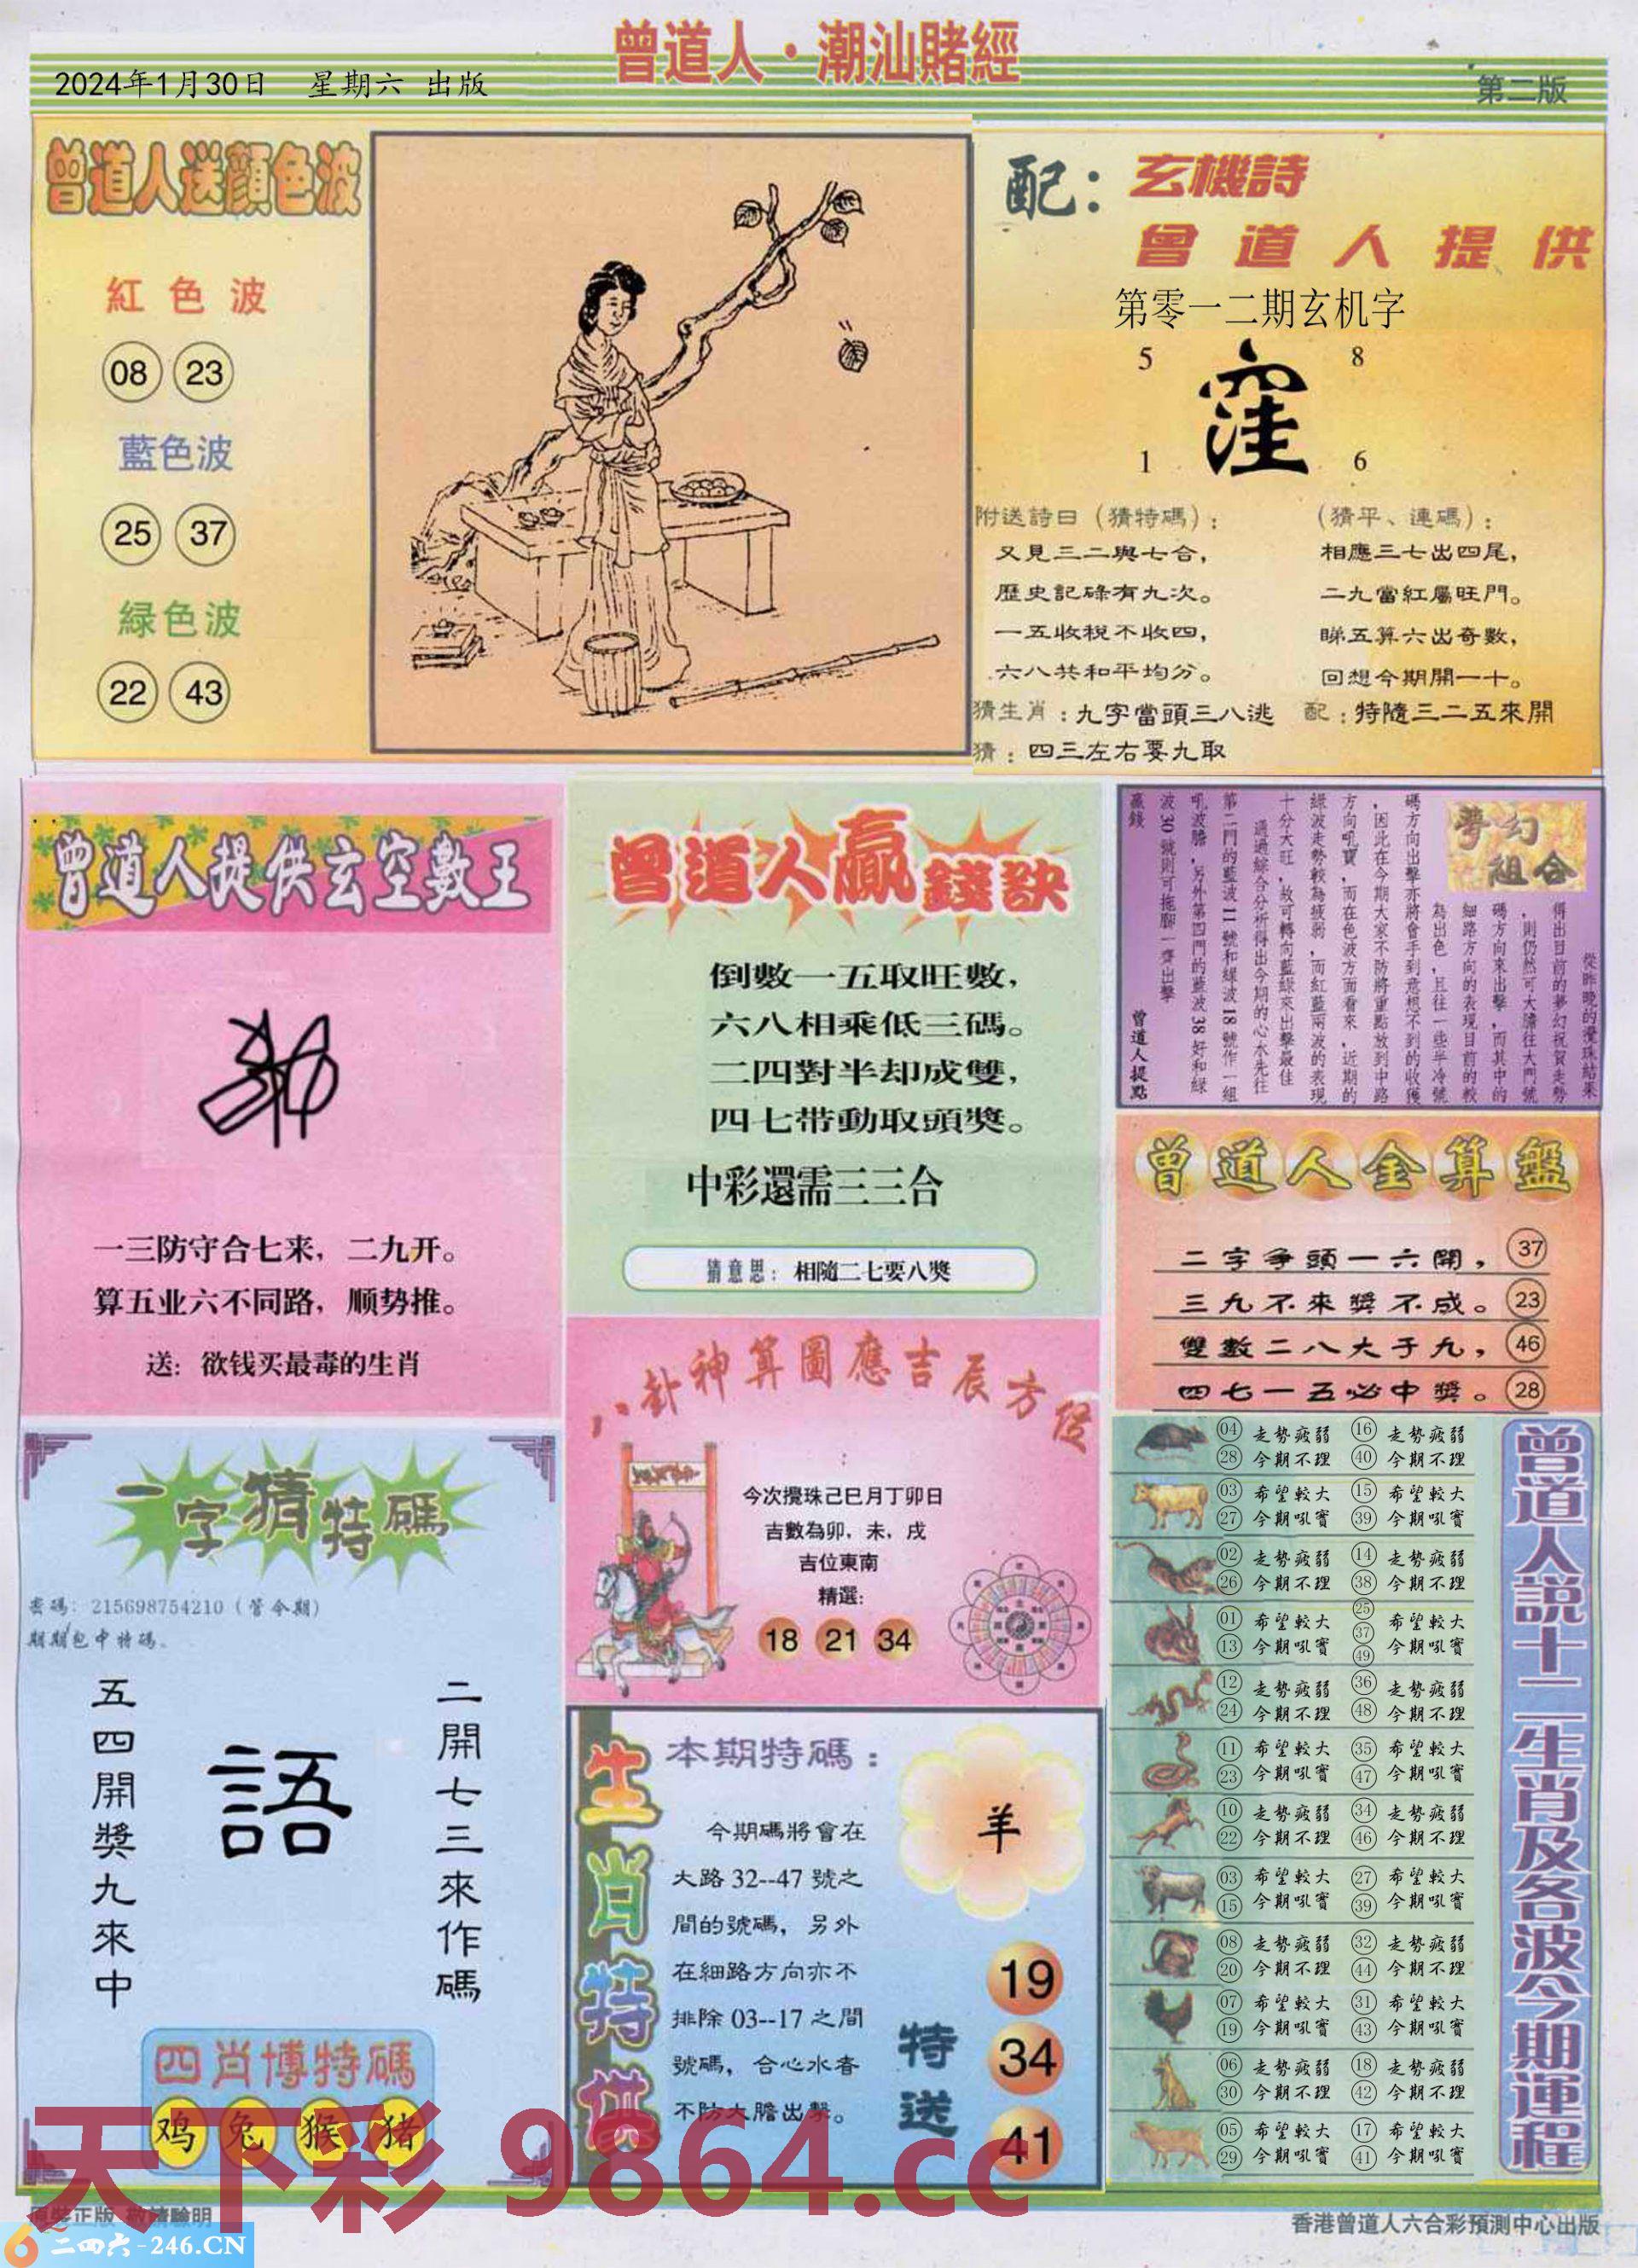 曾道人·潮汕賭經
2024年1月30日 星期六 出版
第二版
曾道人送顏色波
紅色波
08 23
藍色波
25 37
緑色波
22 43
配：玄機詩
曾道人提供
第零一二期玄机字
5 8
窪
1 6
附送詩曰（猜特碼）：
又見三二與七合，
歷史記碌有九次。
一五收稅不收四，
六八共和平均分。
（猜平、連碼）：
相應三七出四尾，
二九當紅屬旺門。
睇五算六出奇數，
回想今期開一十。
猜生肖：九字當頭三八逃
配：特隨三二五來開
猜：四三左右要九取
曾道人提供玄空數王
一三防守合七来，二九开。
算五业六不同路，顺势推。
送：欲钱买最毒的生肖
曾道人贏錢訣
倒數一五取旺數，
六八相乘低三碼。
二四對半却成雙，
四七带動取頭獎。
中彩還需三三合
猜意思：相隨二七要八獎
夢幻組合
從昨晚的攪珠結果
得出目前的夢幻祝賀走勢
，則仍然可大膽往大門號
碼方向來出擊，而其中的
細路方向的表現目前的較
為出色，且往一些半冷號
碼方向出擊亦將會手到意想不到的收獲
，因此在今期大家不防將重點放到中路
方向吼寶，而在色波方面看來，近期的
綠波走勢較為疲弱，而紅藍兩波的表現
十分大旺，故可轉向藍綠來出擊最佳
通過綜合分析得出今期的心水先往
第二門的藍波11號和綠波18號作一組
吼波膽，另外第四門的藍波38好和綠
波30號則可拖腳一齊出擊
贏錢
曾道人提點
曾道人金算盤
二字争頭一六開，37
三九不來獎不成。23
雙數二八大于九，46
四七一五必中獎。28
八卦神算圖應吉辰方位
今次攪珠己巳月丁卯日
吉數為卯，未，戌
吉位東南
精選：
18 21 34
一字猜特碼
密碼：215698754210（管今期）
期期包中特碼。
五四開獎九來中
語
二開七三來作碼
四肖博特碼
鸡 兔 猴 猪
生肖特供
本期特碼：
今期碼將會在
大路32--47號之
間的號碼，另外
在細路方向亦不
排除03--17之間
號碼，合心水者
不防大膽出擊。
羊
特送
19
34
41
曾道人說十二生肖及各波今期運程
04 走勢疲弱 16 走勢疲弱
28 今期不理 40 今期不理
03 希望較大 15 希望較大
27 今期吼寶 39 今期吼寶
02 走勢疲弱 14 走勢疲弱
26 今期不理 38 今期不理
01 希望較大 25 37 希望較大
13 今期吼寶 49 今期吼寶
12 走勢疲弱 36 走勢疲弱
24 今期不理 48 今期不理
11 希望較大 35 希望較大
23 今期吼寶 47 今期吼寶
10 走勢疲弱 34 走勢疲弱
22 今期不理 46 今期不理
03 希望較大 27 希望較大
15 今期吼寶 39 今期吼寶
08 走勢疲弱 32 走勢疲弱
20 今期不理 44 今期不理
07 希望較大 31 希望較大
19 今期吼寶 43 今期吼寶
06 走勢疲弱 18 走勢疲弱
30 今期不理 42 今期不理
05 希望較大 17 希望較大
29 今期吼寶 41 今期吼寶
天下彩 9864.cc
原裝正版 敬請驗明
二四六-246.CN
香港曾道人六合彩預測中心出版